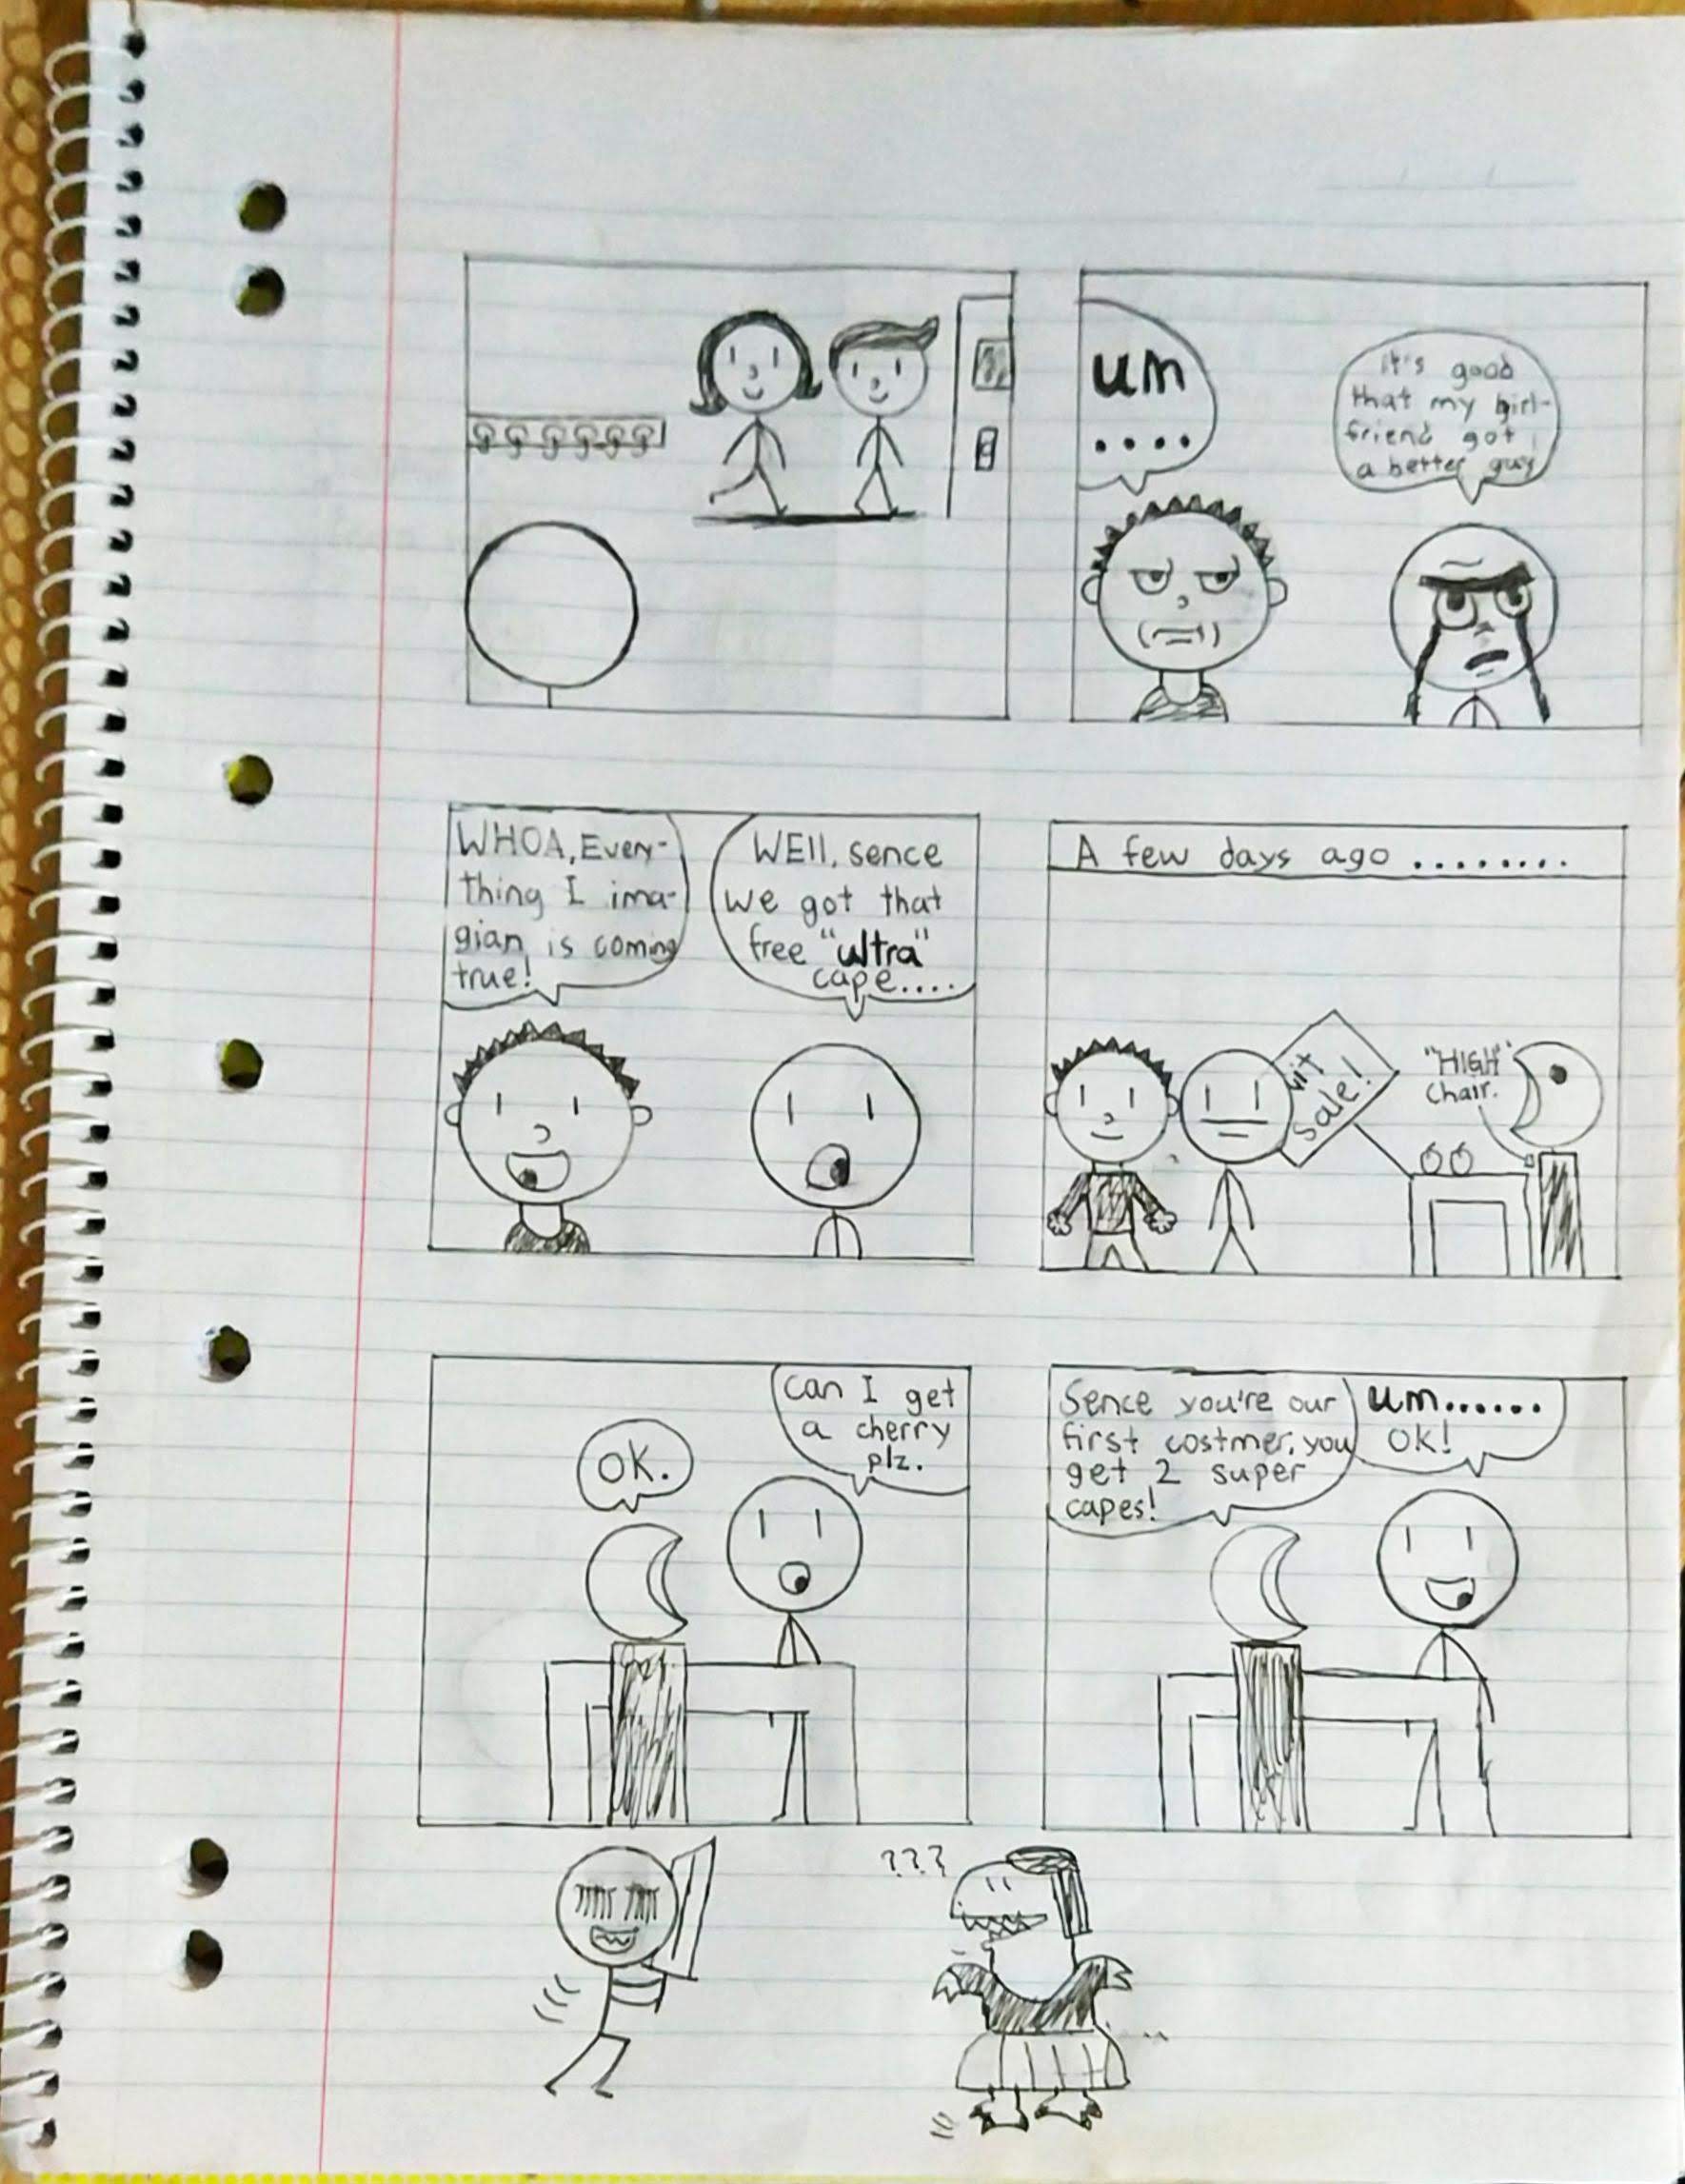 um
....
It's good
that my girl-
friend got
a better guy
WHOA, Every-
thing I ima-
gian is coming
true!
WEll, sence
we got that
free "ultra"
cape....
A few days ago ........
sale!
"HIGH"
Chair.
Can I get
a cherry
plz.
OK.
Sence you're our
first costmer, you
get 2 super
capes!
um......
OK!
???